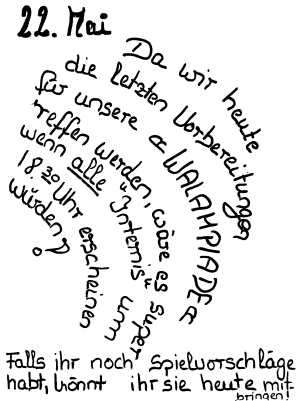 22. Mai
Da wir heute
die letzten Vorbereitungen
für unsere "WALAMPIADE"
treffen werden, wäre es super
wenn alle "Internis" um
18.30 Uhr erscheinen
würden!
Falls ihr noch Spielvorschläge
habt, könnt ihr sie heute mit-
bringen!